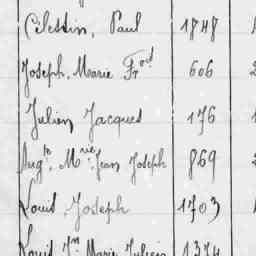 Célestin, Paul 1848
Joseph, Marie Frod 606
Julien Jacques 176
Augte, Mrie Jean Joseph 869
Louis Joseph 1703
Louis Jn Marie Julien 1374